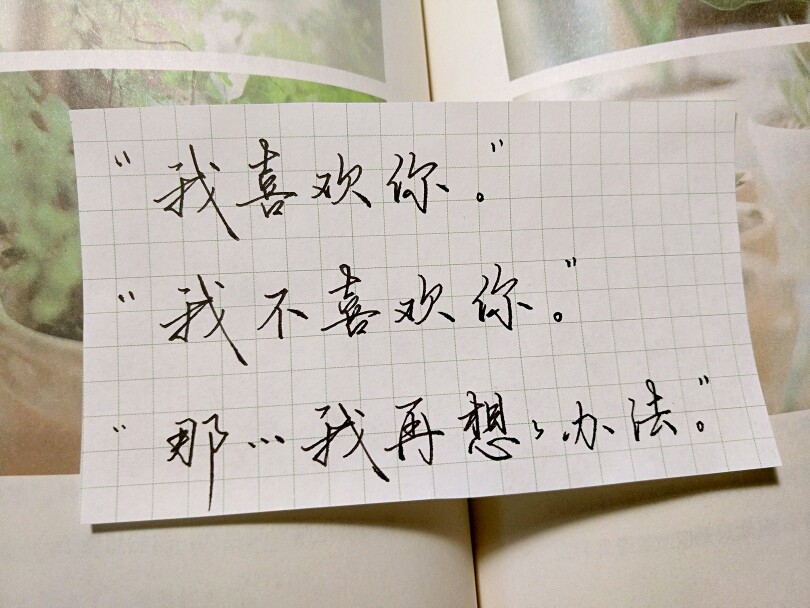 “我喜欢你。”
“我不喜欢你。”
“那…我再想想办法。”